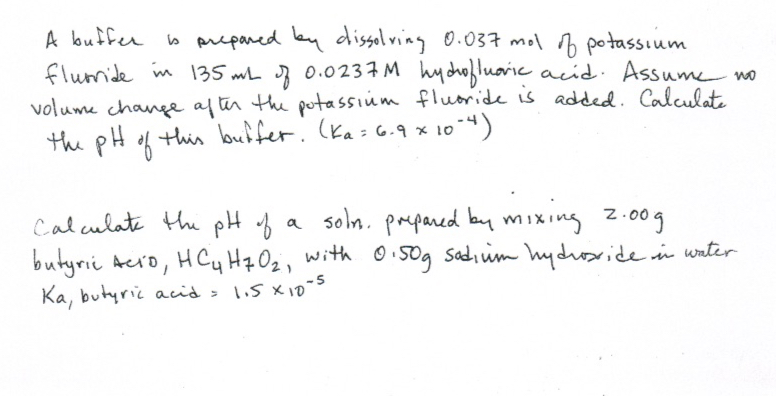 A buffer is prepared by dissolving 0.037 mol of potassium
fluoride in 135 mL of 0.0237 M hydrofluoric acid. Assume no
volume change after the potassium fluoride is added. Calculate
the pH of this buffer. (Ka = 6.9 x 10⁻⁴)
Calculate the pH of a soln. prepared by mixing 2.00g
butyric ACID, HC₄H₇O₂, with 0.50g sodium hydroxide in water
Ka, butyric acid = 1.5 x 10⁻⁵